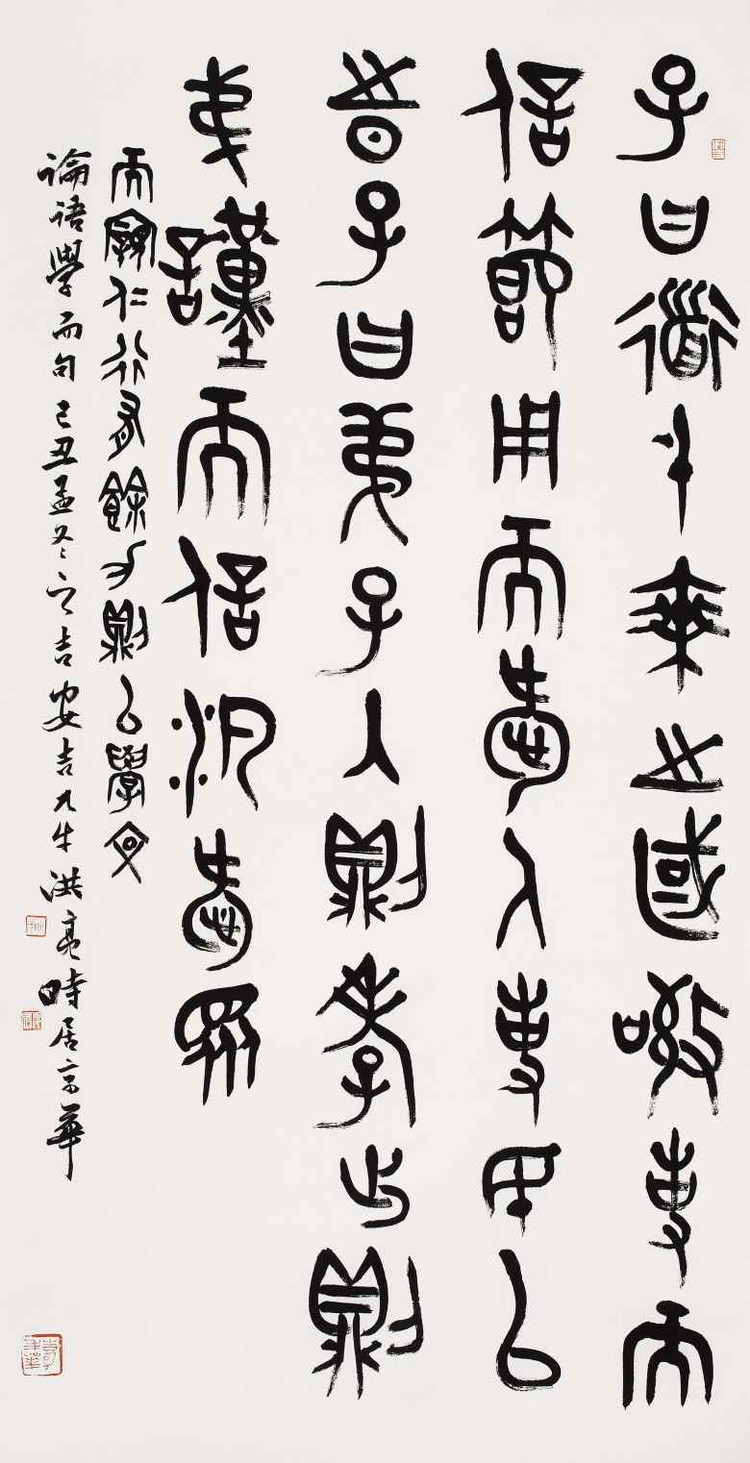 子曰道千乘之國敬事而
信節用而愛人使民以
時子曰弟子入則孝出則
弟謹而信汎愛眾
而親仁行有餘力則以學文
論語學而句己丑孟冬之吉安吉九牛洪亮時居京華